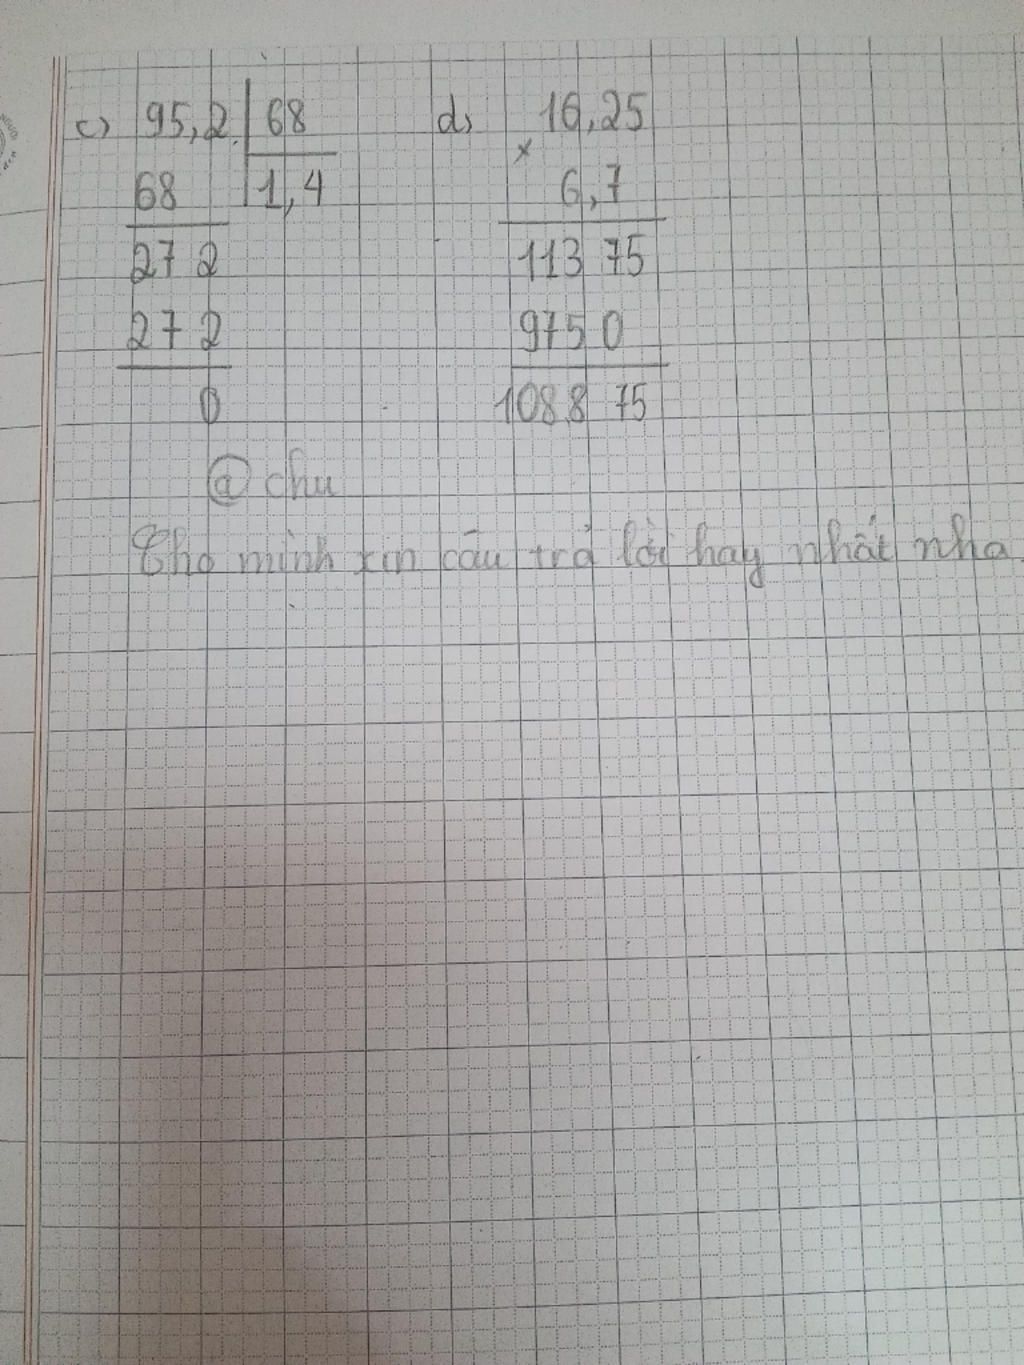 c) 95,2 68 d, 16,25
×
68 1,4 6,7
27 2 113 75
27 2 975 0
0 108,8 75
@ chu
Cho mình xin câu trả lời hay nhất nha